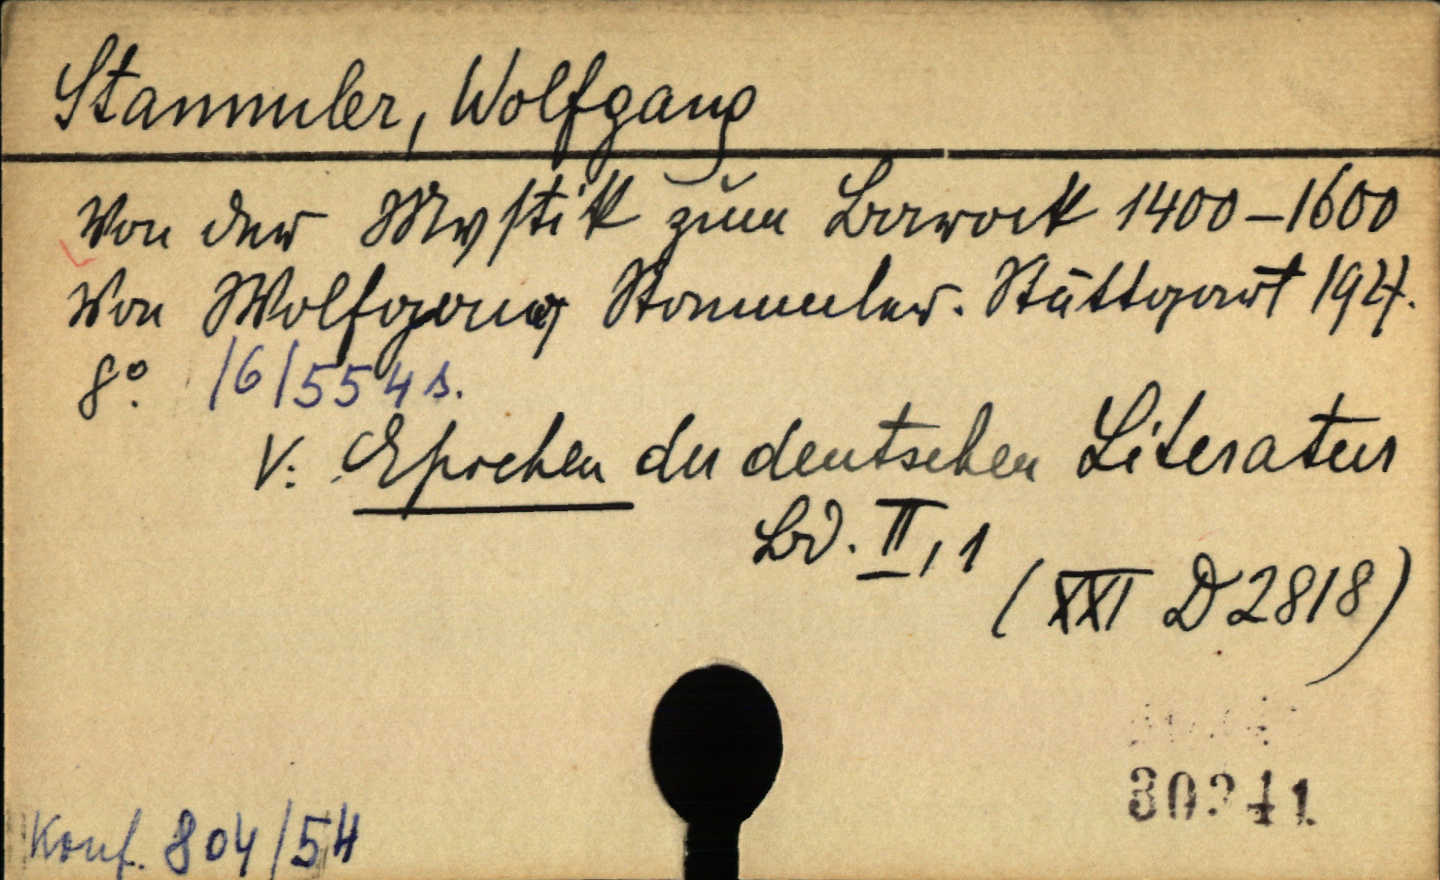 Stammler, Wolfgang
Von der Mystik zum Barock 1400–1600
Von Wolfgang Stammler. Stuttgart 1927.
8°. 16/554 s.
V: Epochen der deutschen Literatur
Bd. II, 1
(XXI D 2818)
Konf. 804/54